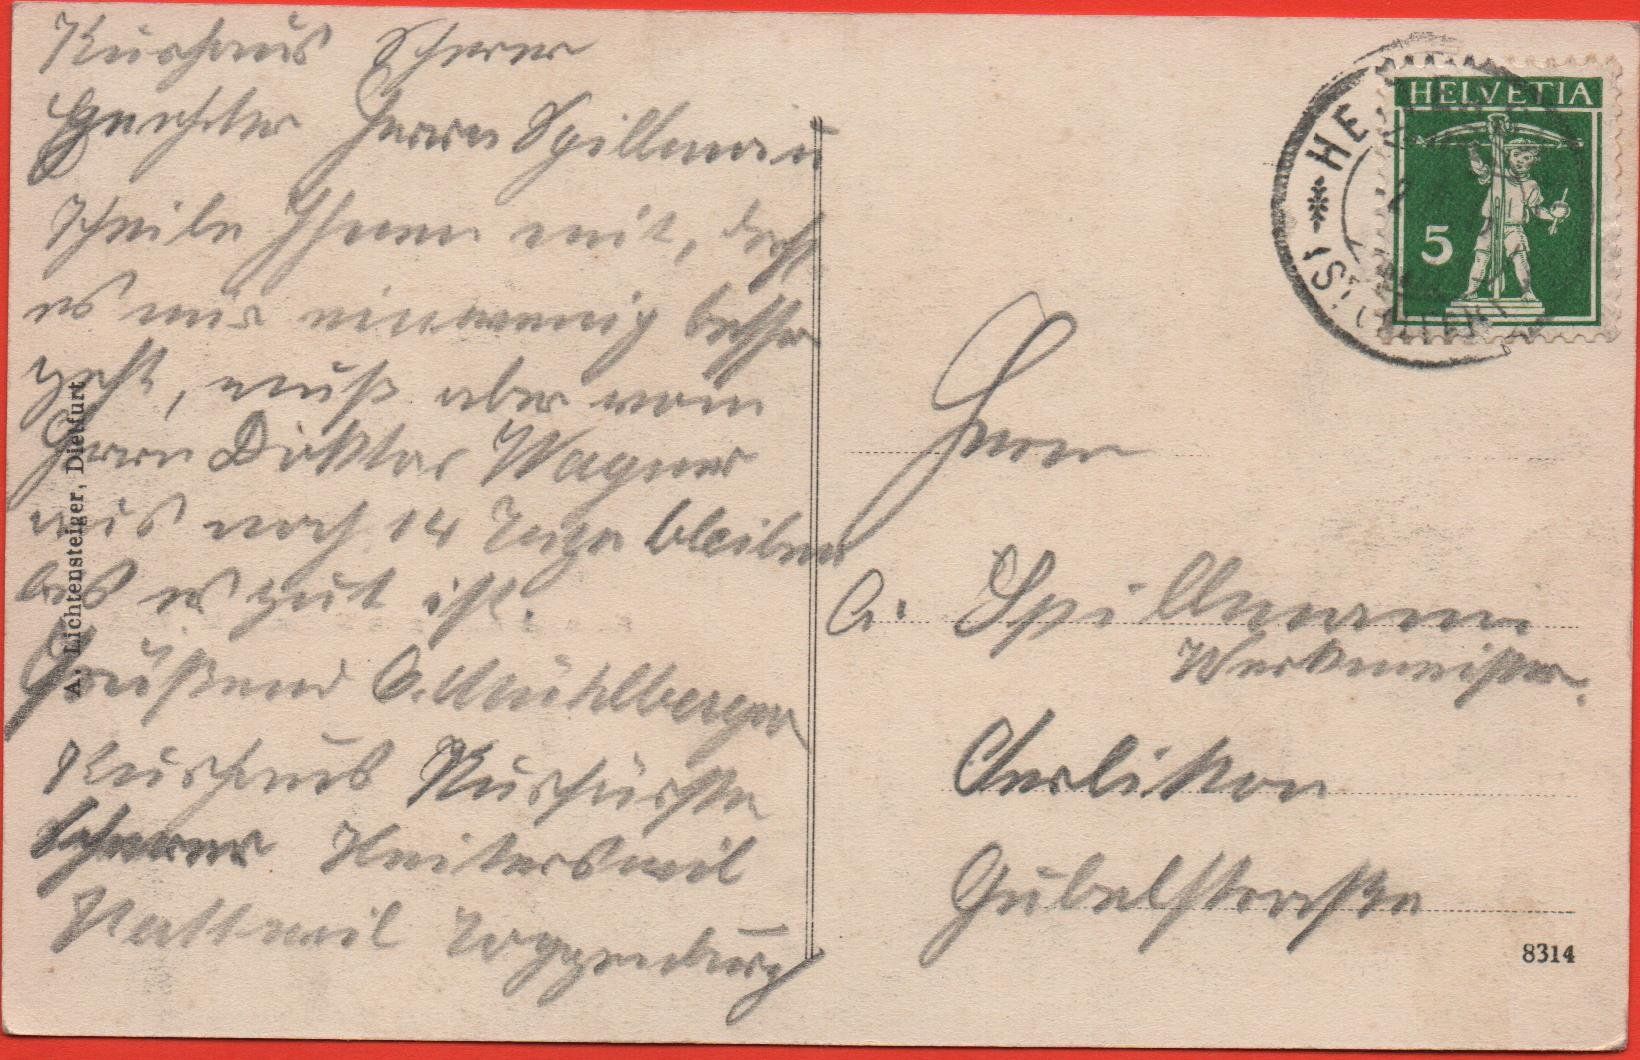 Kurhaus Scherrer
Geehrter Herrn Spillmann
Theile Ihnen mit, daß
es mir einwenig besser
geht, muß aber vom
Herrn Doktor Wagner
aus noch 14 Tage bleiben
bis es gut ist.
Grüßend C. Mühlberger
Kurhaus Kurfürsten
Scherrer
Wattwil Toggenburg
A. Lichtensteiger, Dietfurt
HELVETIA
5
HE
(ST. GALLEN)
Herrn
C. Spillmann
Werkmeister.
Oerlikon
Gubelstraße
8314